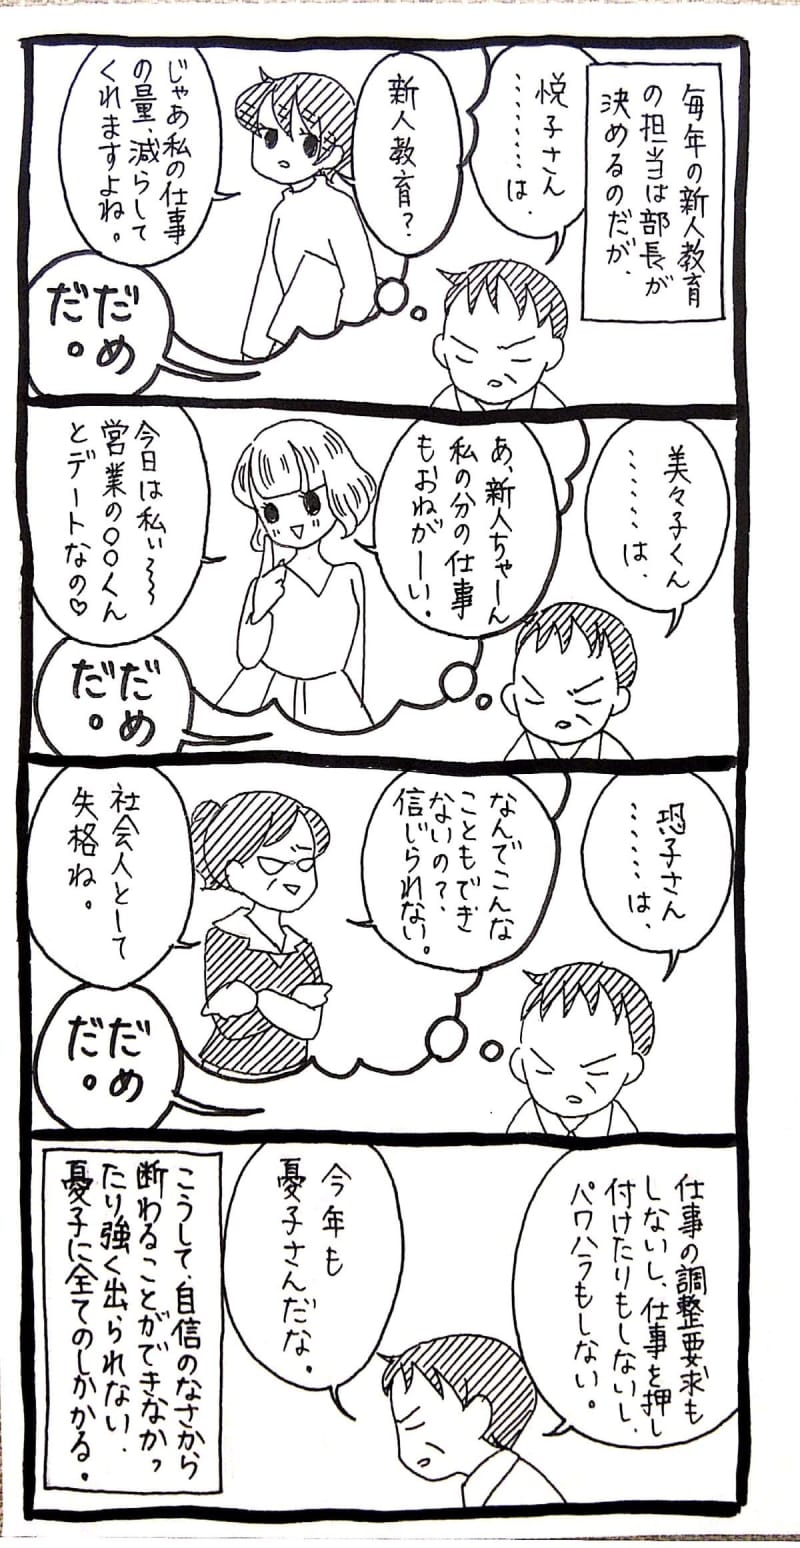 毎年の新人教育
の担当は部長が
決めるのだが、
悦子さん
………は、
新人教育？
じゃあ私の仕事
の量、減らして
くれますよね。
だめ
だ。
美々子くん
………は、
あ、新人ちゃーん
私の分の仕事
もおねがーい。
今日は私ぃ〜〜
営業の〇〇くん
とデートなの♡
だめ
だ。
恐子さん
………は、
なんでこんな
こともでき
ないの？、
信じられない。
社会人として
失格ね。
だめ
だ。
仕事の調整要求も
しないし、仕事を押し
付けたりもしないし、
パワハラもしない。
今年も
憂子さんだな。
こうして、自信のなさから
断わることができなかっ
たり強く出られない、
憂子に全てのしかかる。